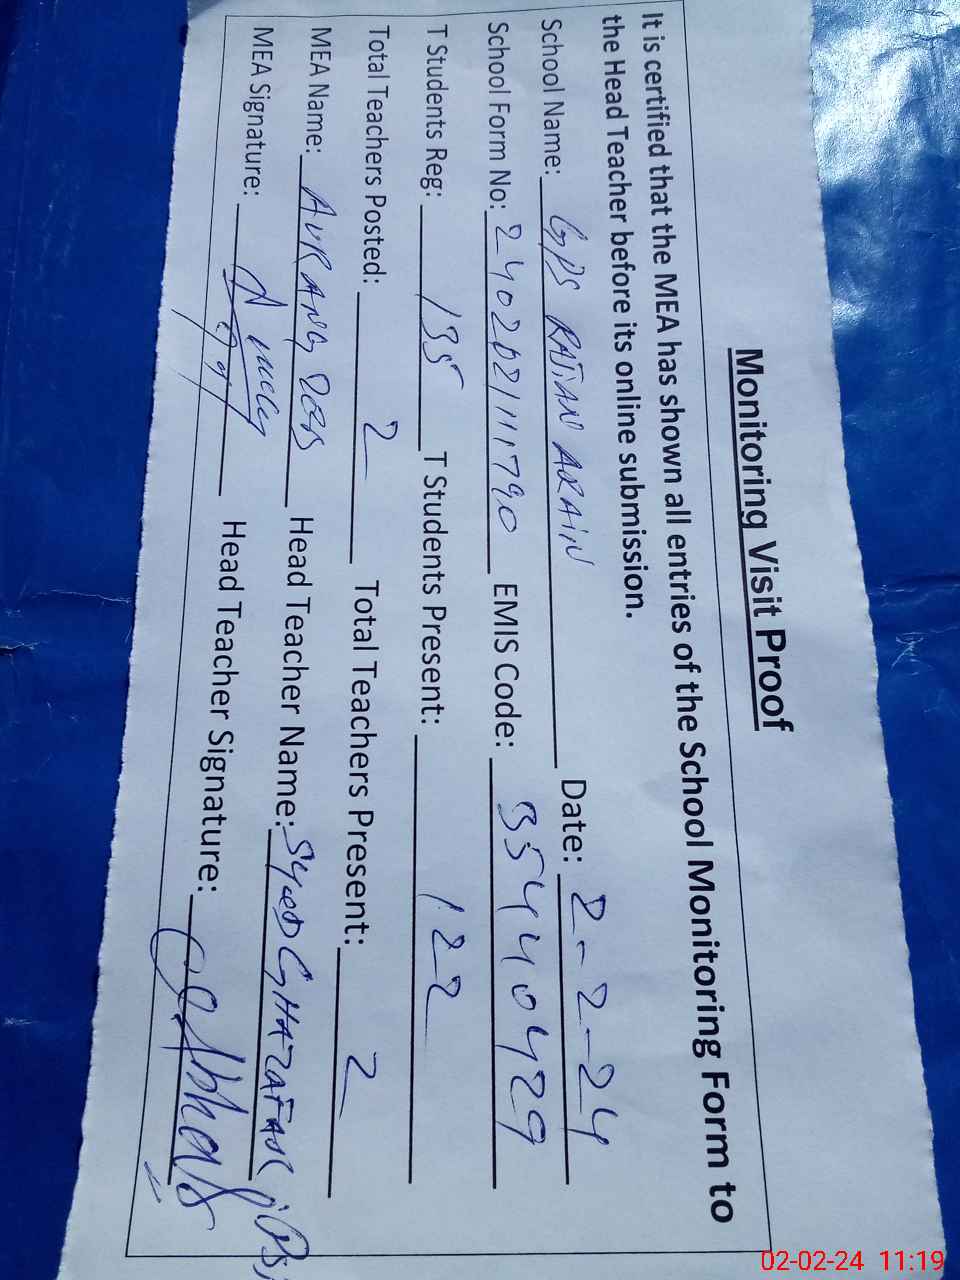 Monitoring Visit Proof
It is certified that the MEA has shown all entries of the School Monitoring Form to
the Head Teacher before its online submission.
School Name: GPS RATIAN ARAIN Date: 2-2-24
School Form No: 2402021111790 EMIS Code: 354440429
T Students Reg: 135 T Students Present: 122
Total Teachers Posted: 2 Total Teachers Present: 2
MEA Name: AURANG ZEB Head Teacher Name: Syed GHAZAFAR
MEA Signature: Head Teacher Signature:
02-02-24 11:19